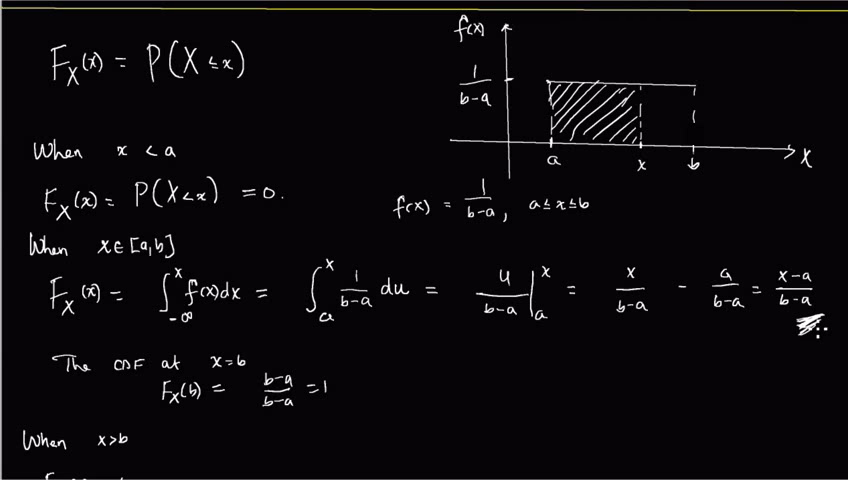 F_X(x) = P(X ≤ x)
f(x)
1/(b-a)
a x b X
f(x) = 1/(b-a), a ≤ x ≤ b
When x < a
F_X(x) = P(X<x) = 0.
When x ∈ [a,b]
F_X(x) = ∫_{-∞}^{x} f(x)dx = ∫_{a}^{x} 1/(b-a) du = u/(b-a) |_{a}^{x} = x/(b-a) - a/(b-a) = (x-a)/(b-a)
The CDF at x=b
F_X(b) = (b-a)/(b-a) = 1
When x>b